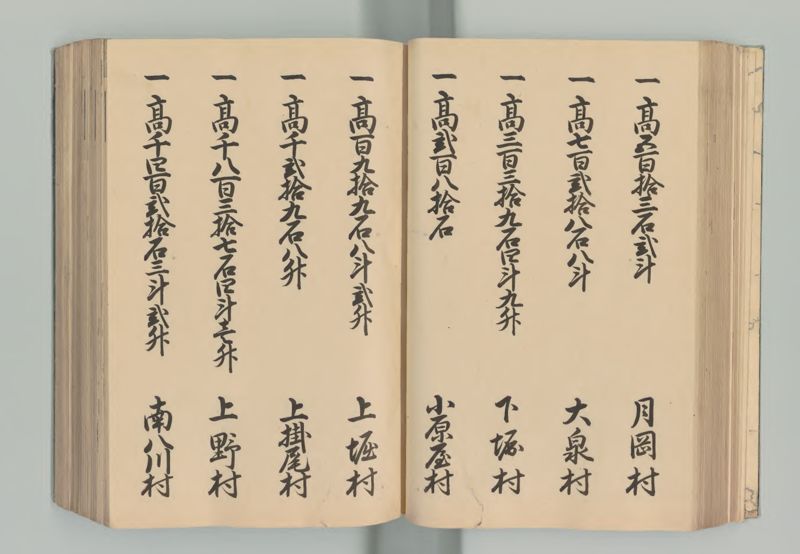 一高五百拾三石弐斗 月岡村
一高七百弐拾八石八斗 大泉村
一高三百三拾九石四斗九升 下堀村
一高弐百八拾石 小原屋村
一高百九拾九石八斗弐升 上堀村
一高千弐拾九石八升 上掛尾村
一高千八百三拾七石四斗壱升 上野村
一高千四百弐拾石三斗弐升 南八川村